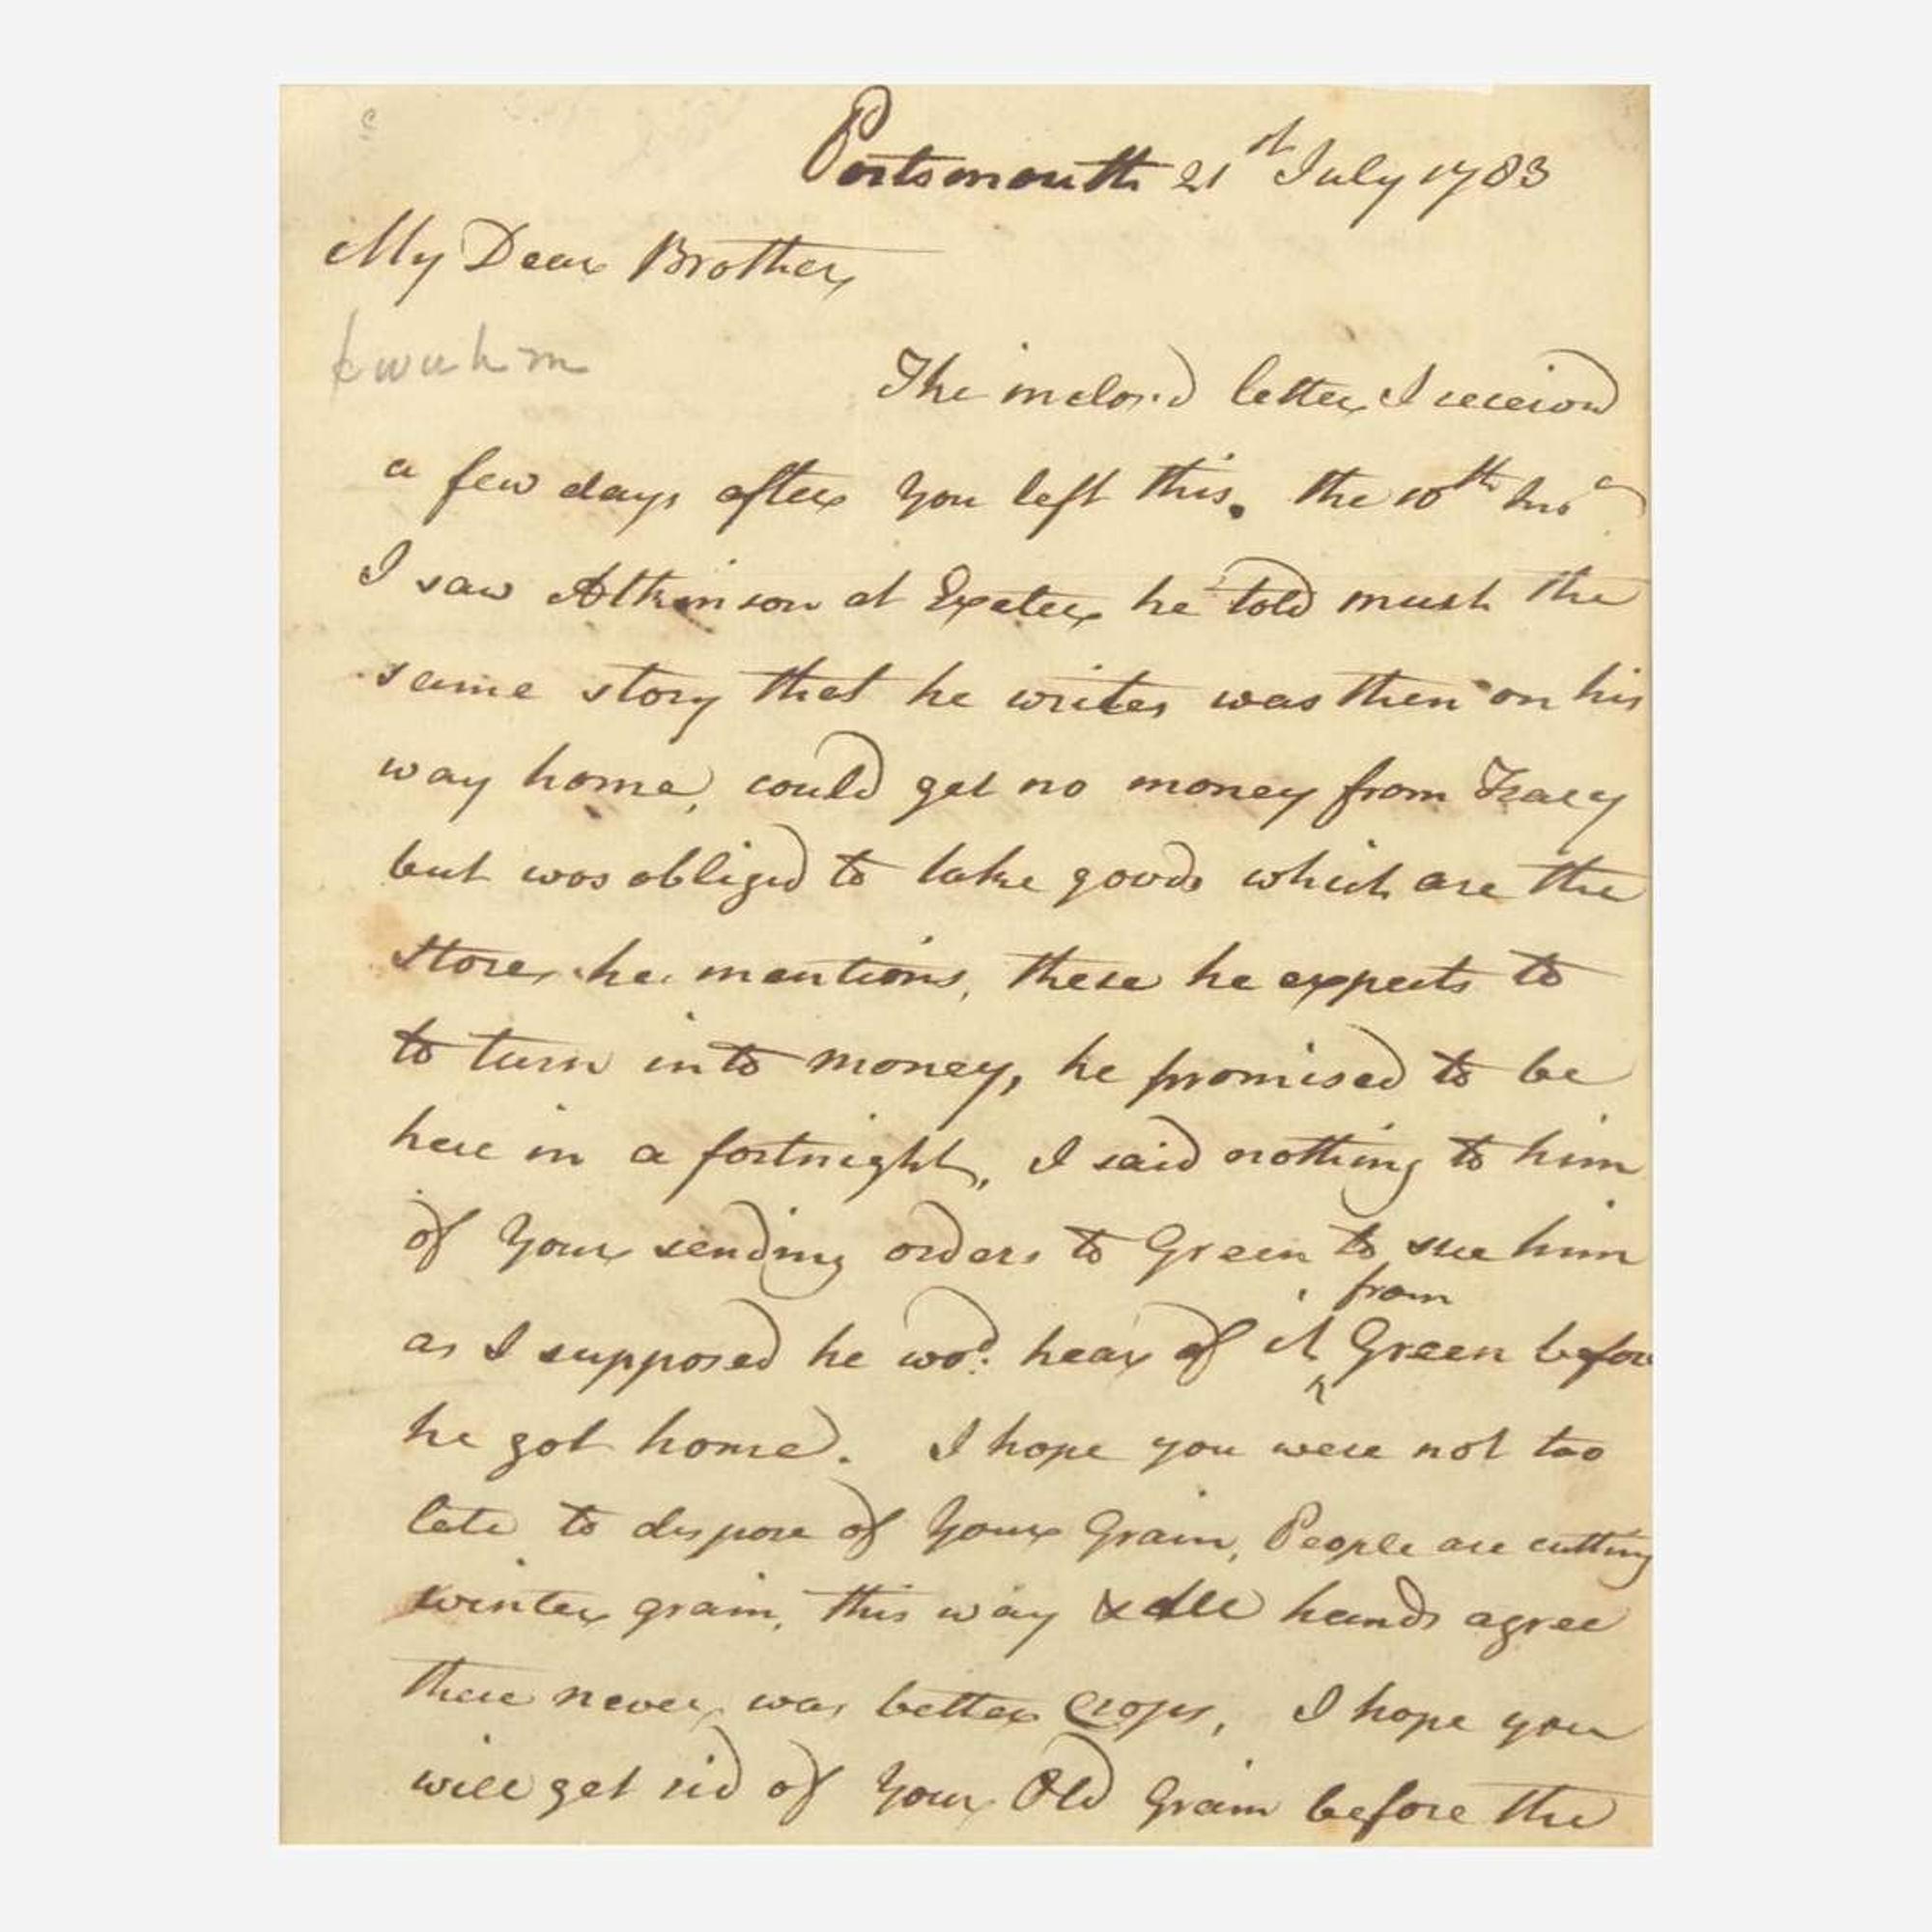 Portsmouth 21st July 1783
My Dear Brother
The inclos.d letter I receiv'd
a few days after you left this. the 10th
I saw Atkinson at Exeter he told much the
same story that he writes was then on his
way home, could get no money from Tracy
but was obliged to take goods which are the
stores he mentions, these he expects to
to turn into money, he promised to be
here in a fortnight, I said nothing to him
of Your sending orders to Green to sue him
from
as I supposed he wod: hear of it ^ Green before
he got home. I hope you were not too
late to dispose of Your Grain, People are cutting
winter grain, this way & all hands agree
there never was better Crops, I hope you
will get rid of Your Old Grain before the